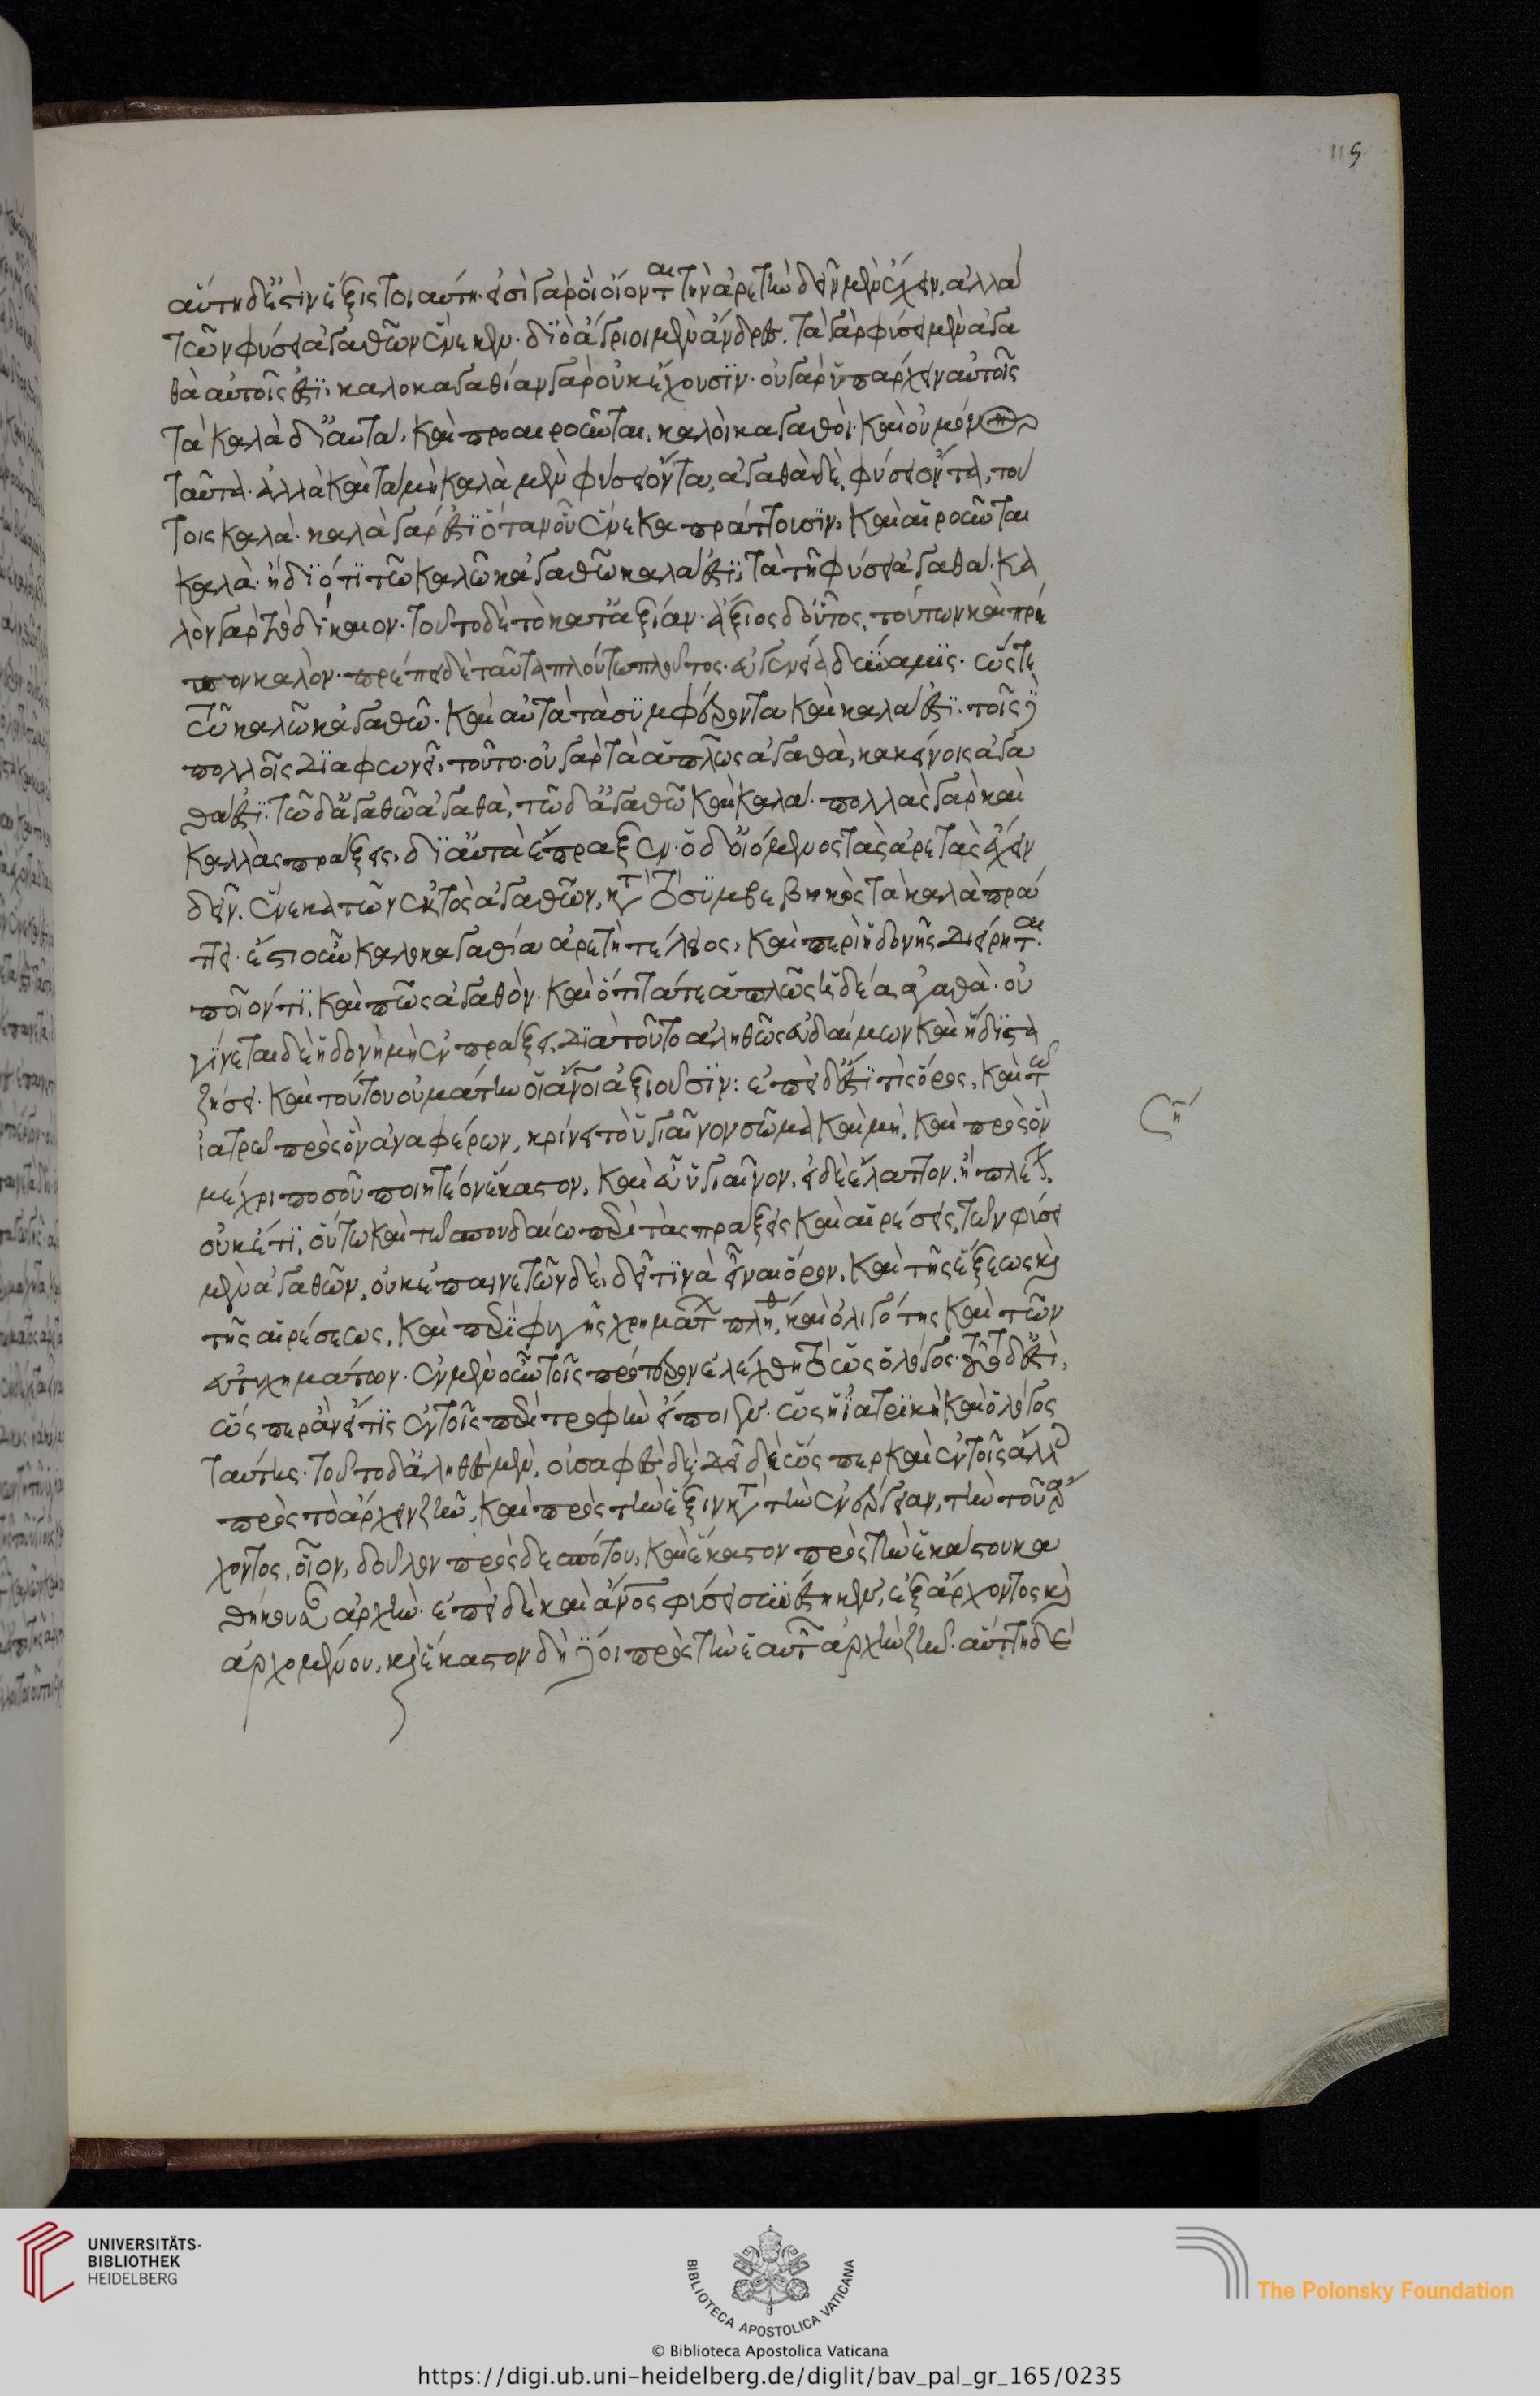 αὕτη δ' ἔστιν ἕξις τοιαύτη· εἰσὶ γὰρ οἳ οἴονται τὴν ἀρετὴν δεῖν μὲν ἔχειν, ἀλλὰ
τῶν φύσει ἀγαθῶν ἕνεκεν· διὸ ἄγριοι μὲν ἄνδρες. τὰ γὰρ φύσει μὲν ἀγα
θὰ αὐτοῖς ἐστί· καλοκαγαθίαν γὰρ οὐκ ἔχουσιν· οὐ γὰρ ὑπάρχειν αὐτοῖς
τὰ καλὰ δι' αὐτά. καὶ προαιροῦνται, καλοὶ καγαθοί· καὶ οὐ μόνον
ταῦτα· ἀλλὰ καὶ τὰ μὴ καλὰ μὲν φύσει ὄντα, ἀγαθὰ δὲ, φύσει ὄντα, του
τοις καλά· καλὰ γάρ ἐστι ὅταν οὗ ἕνεκα πράττουσιν, καὶ αἱροῦνται
καλὰ· ἢ διότι τῶ καλῶ κἀγαθῶ καλά ἐστι, τὰ τῆ φύσει ἀγαθά. κα
λὸν γὰρ τὸ δίκαιον· τοῦτο δὲ τὸ κατ' ἀξίαν· ἄξιος δ' οὗτος, τούτων καὶ πρέ
πον καλὸν· πρέπει δὲ ταῦτα πλούτω πλοῦτος· εὐγενεία δυνάμις· ὥστε
τῶ καλῶ κἀγαθῶ· καὶ αὐτὰ τὰ συμφέροντα καὶ καλά ἐστι· τοῖς δὲ
πολλοῖς διαφωνεῖ, τοῦτο· οὐ γὰρ τὰ ἁπλῶς ἀγαθὰ, κακείνοις ἀγα
θά ἐστι. τῶ δ' ἀγαθῶ ἀγαθὰ, τῶ δ' ἀγαθῶ καὶ καλά· πολλὰς γὰρ καὶ
καλλὰς πράξεις, δι' αὐτὰ ἔπραξεν· ὁ δ' οἰόμενος τὰς ἀρετὰς ἔχειν
δεῖν, ἕνεκα τῶν ἐκτὸς ἀγαθῶν, κατὰ τὸ συμβεβηκὸς τὰ καλὰ πρά
ττει· ἔστι οὖν καλοκαγαθία ἀρετὴ τέλειος, καὶ περὶ ἡδονῆς δ' εἴρηται.
ποῖόν τι, καὶ πῶς ἀγαθὸν· καὶ ὅτι τά τε ἁπλῶς ἡδέα ἀγαθὰ· οὐ
γίνεται δὲ ἡδονὴ μὴ ἐν πράξει, διὰ τοῦτο ἀληθῶς εὐδαίμων καὶ ἥδιστα
ζήσει· καὶ τοῦτο οὐ μάτην οἱ ἄνοι ἀξιοῦσιν: ἐπεὶ δ' ἐστὶ τὶς ὅρος, καὶ τῶ
ἰατρῶ πρὸς ὃν ἀναφέρων, κρίνει τὸ ὑγιαῖνον σῶμα καὶ μὴ, καὶ πρὸς ὃν
μέχρι ποσοῦ ποιητέον ἕκαστον, καὶ εὖ ὑγιαῖνον, εἰ δὲ ἔλαττον, ἢ πλεῖον.
οὐκέτι, οὕτω καὶ τῶ σπουδαίω περὶ τὰς πράξεις καὶ αἱρέσεις, τῶν φύσει
μὲν ἀγαθῶν, οὐκ ἐπαινετῶν δὲ, δεῖ τινὰ εἶναι ὅρον, καὶ τῆς ἕξεως καὶ
τῆς αἱρέσεως, καὶ περὶ φυγῆς χρημάτων πλῆθος, καὶ ὀλιγότης καὶ τῶν
εὐτυχημάτων· ἐν μὲν οὖν τοῖς πρότερον ἐλέχθη τὸ ὡς ὁ λόγος· τοῦτο δ' ἐστὶ,
ὥσπερ ἂν εἴ τις ἐν τοῖς περὶ τροφὴν εἴποιεν· ὡς ἡ ἰατρικὴ καὶ ὁ λόγος
ταύτης· τοῦτο δ' ἀληθὲς μὲν, οὐ σαφὲς δέ· δεῖ δὲ ὥσπερ καὶ ἐν τοῖς ἄλλοις
πρὸς τὸ ἄρχειν ζῆν, καὶ πρὸς τὴν ἕξιν κατὰ τὴν ἐνέργειαν, τὴν τοῦ ἄρ
χοντος, οἷον, δοῦλον πρὸς δεσπότου, καὶ ἕκαστον πρὸς τὴν ἑκάστου κα
θήκουσαν ἀρχὴν· ἐπεὶ δὲ καὶ ἄνος φύσει συνέστηκεν, ἐξ ἄρχοντος καὶ
ἀρχομένου, καὶ ἕκαστον δὴ δέοι πρὸς τὴν ἑαυτῶν ἀρχὴν ζῆν· αὕτη δὲ
ση
115
UNIVERSITÄTS-
BIBLIOTHEK
HEIDELBERG
BIBLIOTECA APOSTOLICA VATICANA
The Polonsky Foundation
© Biblioteca Apostolica Vaticana
https://digi.ub.uni-heidelberg.de/diglit/bav_pal_gr_165/0235